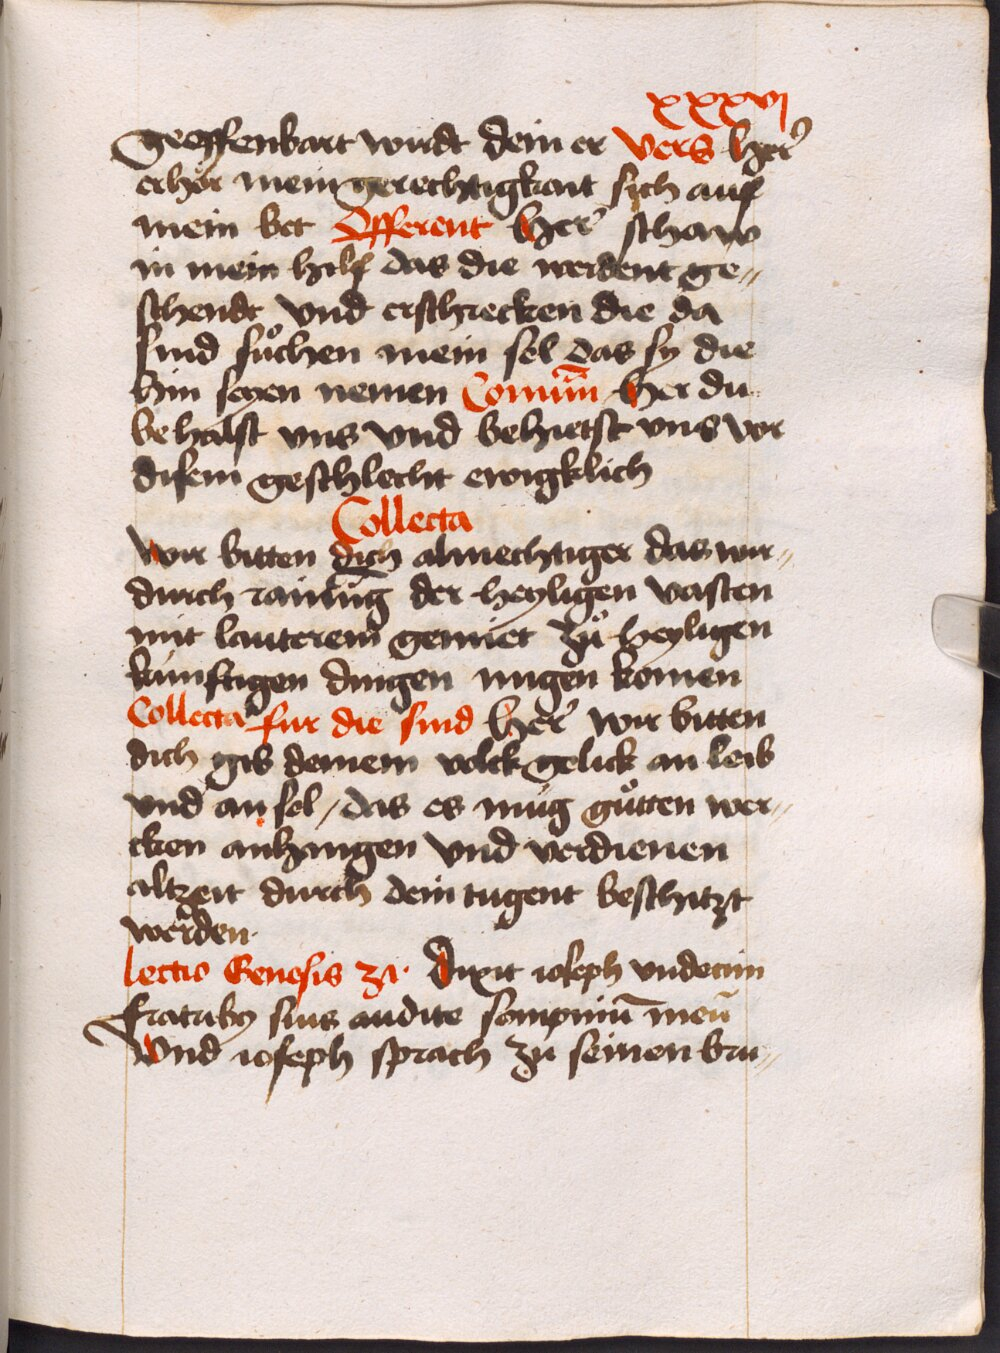 xxxvj
Geoffenbart wirdt dein er Vers her᷑
erhör mein gerechtigkait sich auf
mein bet Offerent her᷑ schaw
in mein hilf das die werdent ge〃
schendt vnd erschrecken die da
sind sůchen mein sel das sy die
hin seyen nemen Comūm her du
behalst vns vnd behietst vns vor
disem geschlecht ewigklich
Collecta
Wir bitten dich almechtiger das wir〃
durch rainūg der heyligen vasten
mit lauterem gemiet zů heyligen
kunftigen dingen mugen komen
Collecta fur die sind her᷑ wir bitten
dich gib deinem volck gelick an leib
vnd an sel / das es mug gůtten wer〃
cken anhangen vnd verdienen
altzeit durch dein tugent beschitzt
werden.
Lectio Genesis 37. Dixit ioseph vndecim
fratribꝫ suis audite sompniū meū
Vnd ioseph sprach zu seinen bru〃